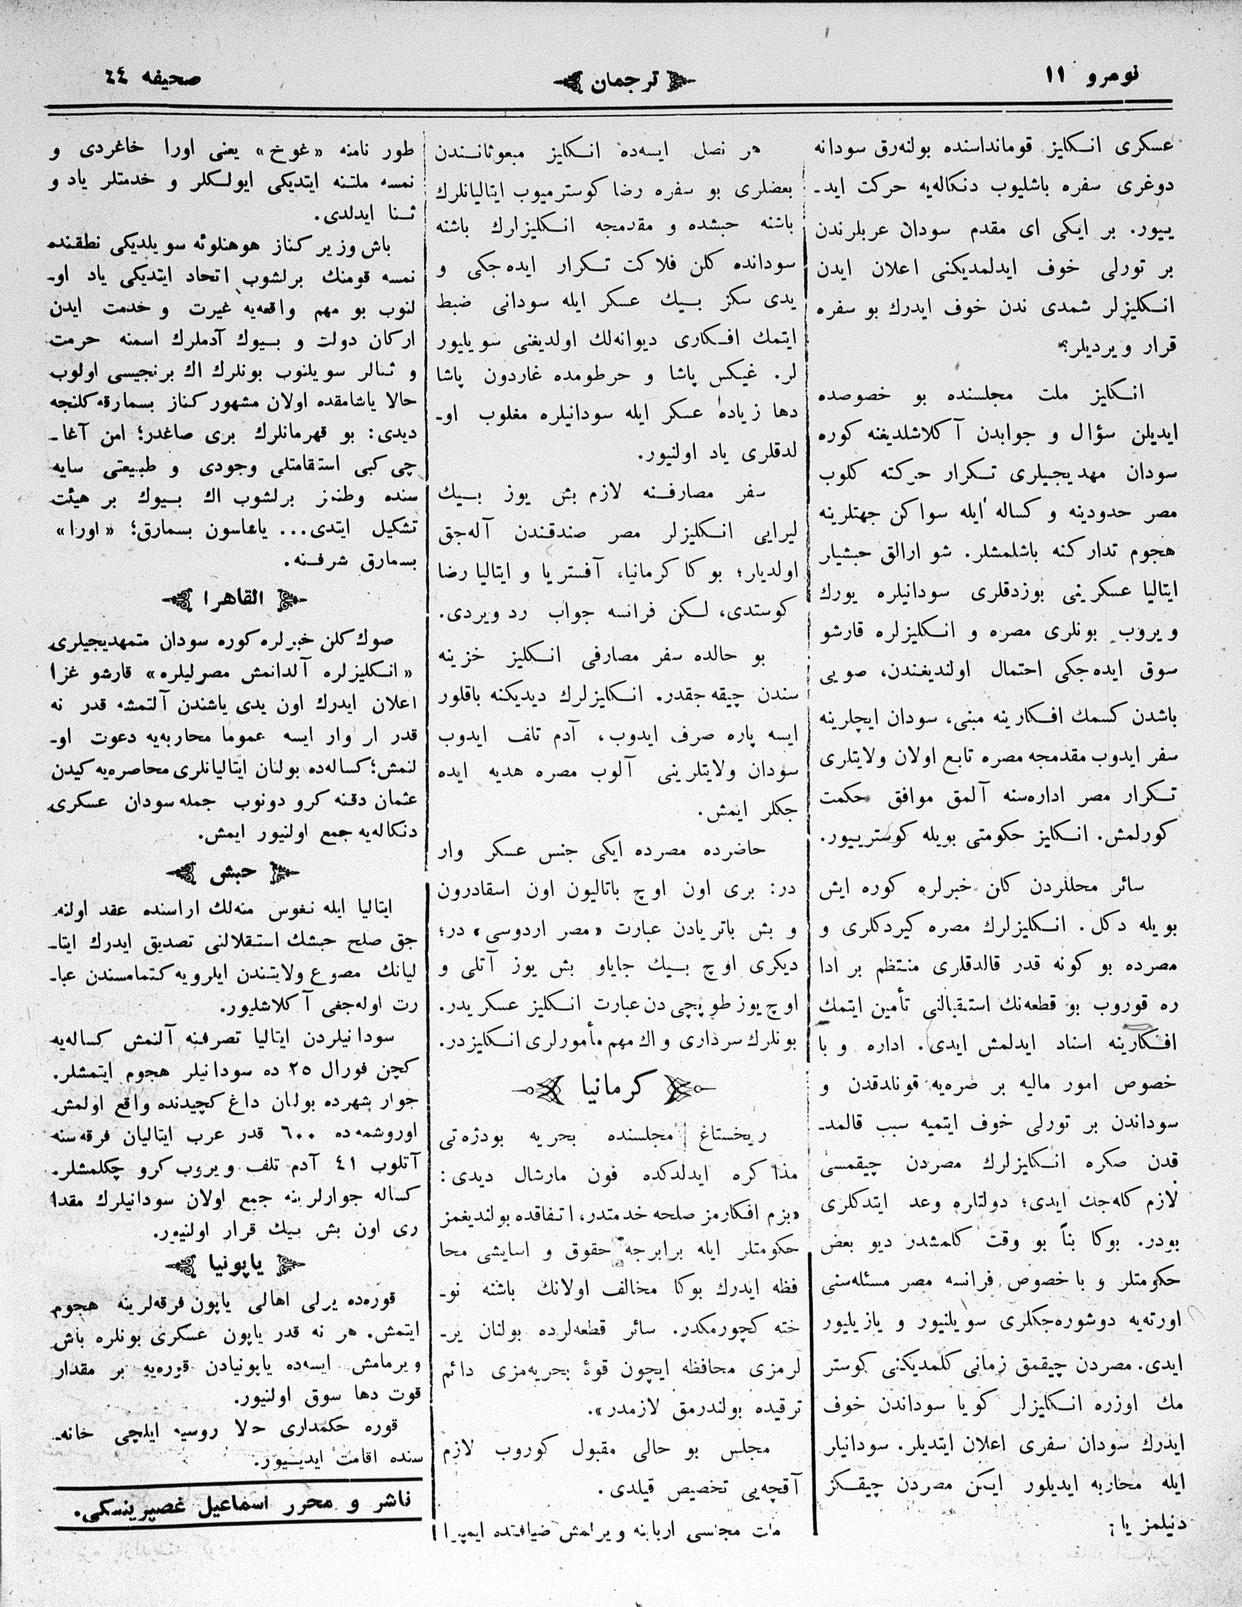 نومرو ١١
ترجمان
صحيفه ٤٤
عسكرى انكليز قومانداسنده بولنه‌رق سودانه
دوغرى سفره باشليوب دنكاله‌يه حركت ايد-
ييور. بر ايكى اى مقدم سودان عربلرندن
بر تورلى خوف ايدلمديكنى اعلان ايدن
انكليزلر شمدى ندن خوف ايدرك بو سفره
قرار ويرديلر؟
انكليز ملت مجلسنده بو خصوصده
ايديلن سؤال و جوابدن آكلاشلديغنه كوره
سودان مهديجيلرى تكرار حركته كلوب
مصر حدودينه و كساله ايله سواكن جهتلرينه
هجوم تداركنه باشلمشلر. شو ارالق حبشيار
ايتاليا عسكرينى بوزدقلرى سودانيلره يورك
ويروب بونلرى مصره و انكليزلره قارشو
سوق ايده‌جكى احتمال اولنديغندن، صويى
باشدن كسمك افكارينه مبنى، سودان ايچلرينه
سفر ايدوب مقدمجه مصره تابع اولان ولايتلرى
تكرار مصر اداره‌سنه آلمق موافق حكمت
كورلمش. انكليز حكومتى بويله كوسترييور.
سائر محللردن كلن خبرلره كوره ايش
بويله دكل. انكليزلرك مصره كيردكلرى و
مصرده بو كونه قدر قالدقلرى منتظم بر ادا
ره قوروب بو قطعه‌نك استقبالنى تأمين ايتمك
افكارينه اسناد ايدلمش ايدى. اداره و با
خصوص امور ماليه بر ضره‌يه قوندقدن و
سوداندن بر تورلى خوف ايتميه سبب قالمد-
قدن صكره انكليزلرك مصردن چيقمسى
لازم كله‌جك ايدى؛ دولتلره وعد ايتدكلرى
بودر. بوكا بناً بو وقت كلمشدر ديو بعض
حكومتلر و باخصوص فرانسه مصر مسئله‌سنى
اورته‌يه دوشوره‌جكلرى سويلنيور و يازيليور
ايدى. مصردن چيقمق زمانى كلمديكنى كوستر
مك اوزره انكليزلر كويا سوداندن خوف
ايدرك سودان سفرى اعلان ايتديلر. سودانيلر
ايله محاربه ايديلور ايكن مصردن چيقكز
دنيلمز يا؛
هر نصل ايسه‌ده انكليز مبعوثانندن
بعضلرى بو سفره رضا كوسترميوب ايتاليانلرك
باشنه حبشده و مقدمجه انكليزلرك باشنه
سودانده كلن فلاكت تكرار ايده‌جكى و
يدى سكز بيك عسكر ايله سودانى ضبط
ايتمك افكارى ديوانه‌لك اولديغنى سويليور
لر. غيكس پاشا و حرطومده غاردون پاشا
دها زياده عسكر ايله سودانيلره مغلوب او-
لدقلرى ياد اولنيور.
سفر مصارفنه لازم بش يوز بيك
ليرايى انكليزلر مصر صندقندن آله‌جق
اولديار؛ بوكا كرمانيا، آفستريا و ايتاليا رضا
كوستدى، لكن فرانسه جواب رد ويردى.
بو حالده سفر مصارفى انكليز خزينه
سندن چيقه‌جقدر. انكليزلرك ديديكنه باقلور
ايسه پاره صرف ايدوب، آدم تلف ايدوب
سودان ولايتلرينى آلوب مصره هديه ايده
جكلر ايمش.
حاضرده مصرده ايكى جنس عسكر وار
در: برى اون اوچ باتاليون اون اسقادرون
و بش باتريادن عبارت «مصر اردوسى» در؛
ديكرى اوچ بيك جاياو بش يوز آتلى و
اوچ يوز طوپچى دن عبارت انكليز عسكريدر.
بونلرك سردارى و اك مهم مأمورلرى انكليزدر.
كرمانيا
ريخستاغ مجلسنده بحريه بودژه‌تى
مذاكره ايدلدكده فون مارشال ديدى:
«بزم افكارمز صلحه خدمتدر، اتفاقده بولنديغمز
حكومتلر ايله برابرجه حقوق و اسايشى محا
فظه ايدرك بوكا مخالف اولانك باشنه نو-
خته كچورمكدر. سائر قطعه‌لرده بولنان ير-
لرمزى محافظه ايچون قوهٔ بحريه‌مزى دائم
ترقيده بولندرمق لازمدر».
مجلس بو حالى مقبول كوروب لازم
آقچه‌يى تخصيص قيلدى.
ملت مجلسى اربابنه ويرلمش ضيافتده ايمپرا
طور نامنه «غوخ» يعنى اورا خاغردى و
نمسه ملتنه ايتديكى ايولكلر و خدمتلر ياد و
ثنا ايدلدى.
باش وزير كناز هوهنلوئه سويلديكى نطقنده
نمسه قومنك برلشوب اتحاد ايتديكى ياد او-
لنوب بو مهم واقعه‌يه غيرت و خدمت ايدن
اركان دولت و بيوك آدملرك اسمنه حرمت
و ثنالر سويلنوب بونلرك اك برنجيسى اولوب
حالا ياشامقده اولان مشهور كناز بسمارقه كلنجه
ديدى: بو قهرمانلرك برى صاغدر؛ امن آغا-
چى كبى استقامتلى وجودى و طبيعتى سايه
سنده وطنمز برلشوب اك بيوك بر هيئت
تشكيل ايتدى... ياشاسون بسمارق؛ «اورا»
بسمارق شرفنه.
القاهرا
صوك كلن خبرلره كوره سودان متمهديجيلرى
«انكليزلره آلدانمش مصرليلره» قارشو غزا
اعلان ايدرك اون يدى ياشندن آلتمشه قدر نه
قدر ار وار ايسه عموما محاربه‌يه دعوت او-
لنمش؛ كساله‌ده بولنان ايتاليانلرى محاصره‌يه كيدن
عثمان دقنه كرو دونوب جمله سودان عسكرى
دنكاله‌يه جمع اولنيور ايمش.
حبش
ايتاليا ايله نغوس منه‌لك اراسنده عقد اولنه‌
جق صلح حبشك استقلالنى تصديق ايدرك ايتا-
ليانك مصوع ولايتندن ايلرويه كتمامسندن عبا-
رت اوله‌جغى آكلاشليور.
سودانيلردن ايتاليا تصرفنه آلنمش كساله‌يه
كچن فورال ٢٥ ده سودانيلر هجوم ايتمشلر.
جوار شهرده بولنان داغ كچيدنده واقع اولمش
اوروشمه‌ده ٦٠٠ قدر عرب ايتاليان فرقه‌سنه
آتلوب ٤١ آدم تلف ويروب كرو چكلمشلر.
كساله جوارلرينه جمع اولان سودانيلرك مقدا
رى اون بش بيك قرار اولنيور.
ياپونيا
قوره‌ده يرلى اهالى ياپون فرقه‌لرينه هجوم
ايتمش. هر نه قدر ياپون عسكرى بونلره باش
ويرمامش ايسه‌ده ياپونيادن قوره‌يه بر مقدار
قوت دها سوق اولنيور.
قوره حكمدارى حلا روسيه ايلچى خانه-
سنده اقامت ايدييور.
ناشر و محرر اسماعيل غصپرينسكى.